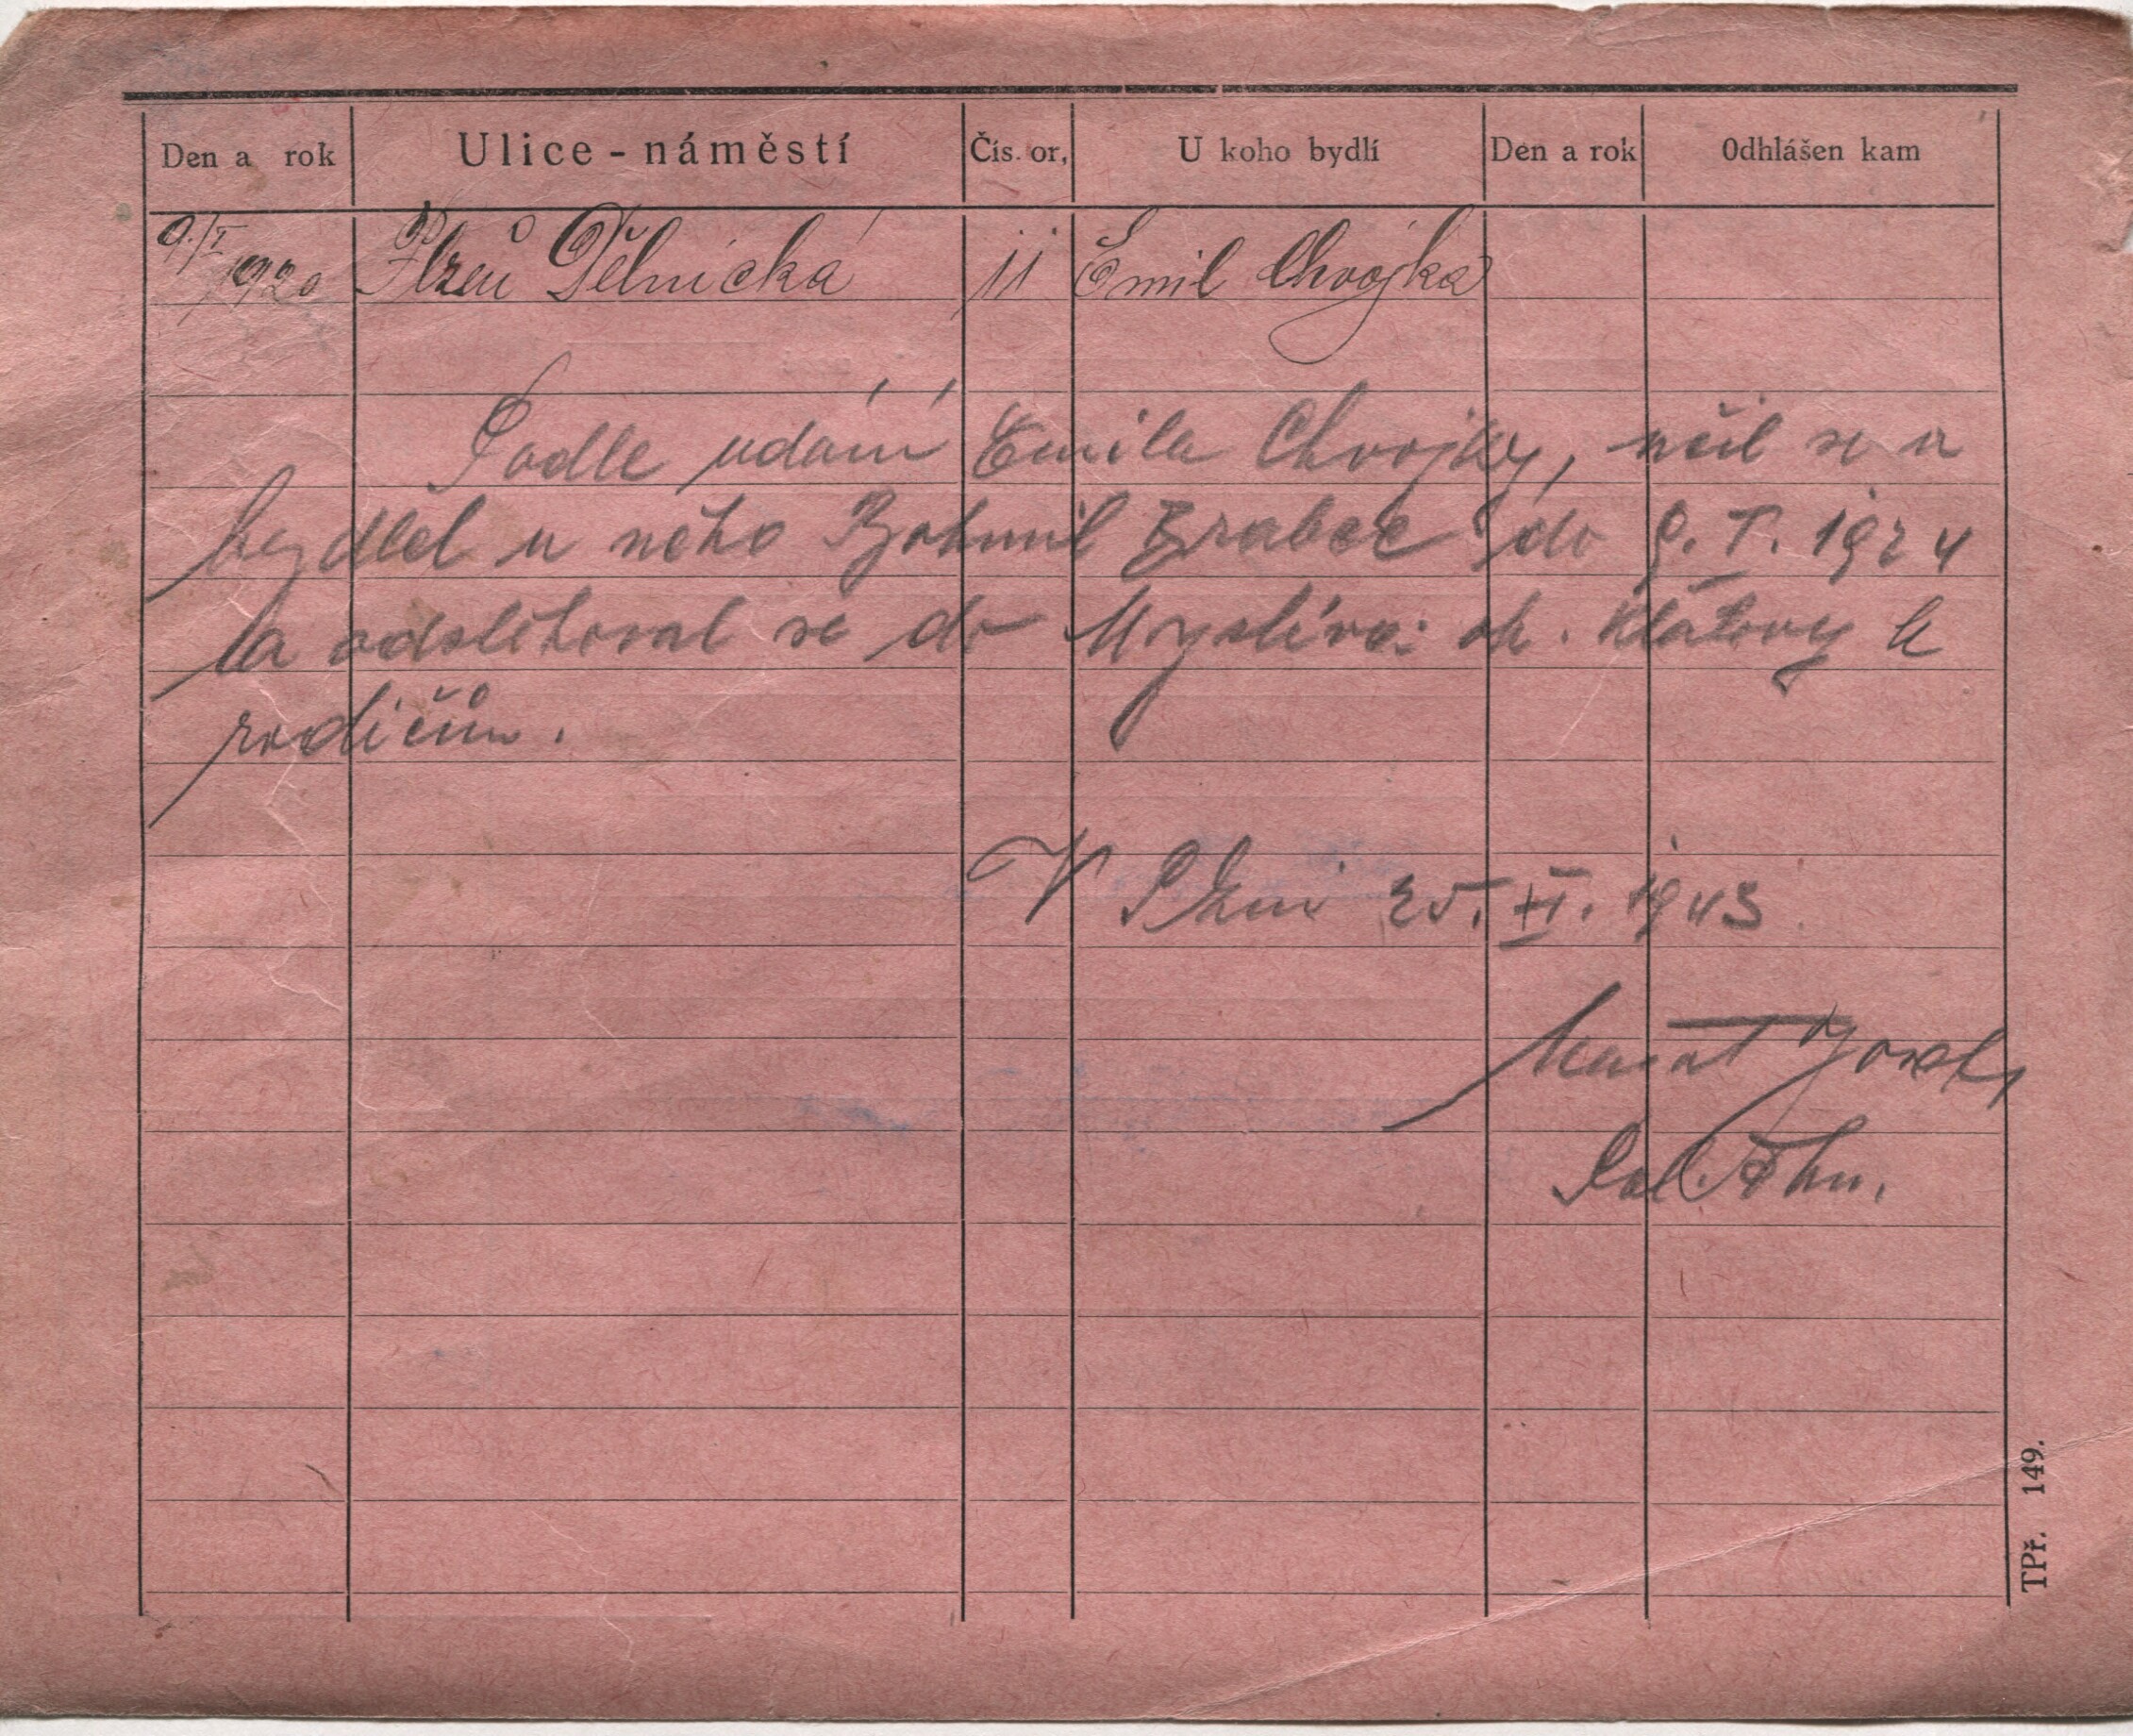 Den a rok Ulice - náměstí Čís. or. U koho bydlí Den a rok Odhlášen kam
9./I 1920 Plzeň Dělnická 11 Emil Chvojka
Podle udání Emila Chvojky, učil se a
bydlel u něho Bohumil Brabec do 9. I. 1924
a odstěhoval se do Myslíva: ok. Klatovy k
rodičům.
V Plzni 25. II. 1943
Josef,
TPř. 149.